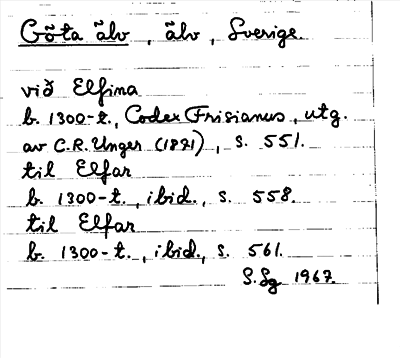 Göta älv, älv, Sverige.
við Elfina
b. 1300-t., Codex Frisianus, utg.
av C.R. Unger (1871), s. 551.
til Elfar
b. 1300-t., ibid., s. 558.
til Elfar
b. 1300-t., ibid., s. 561.
S.Sg 1967.